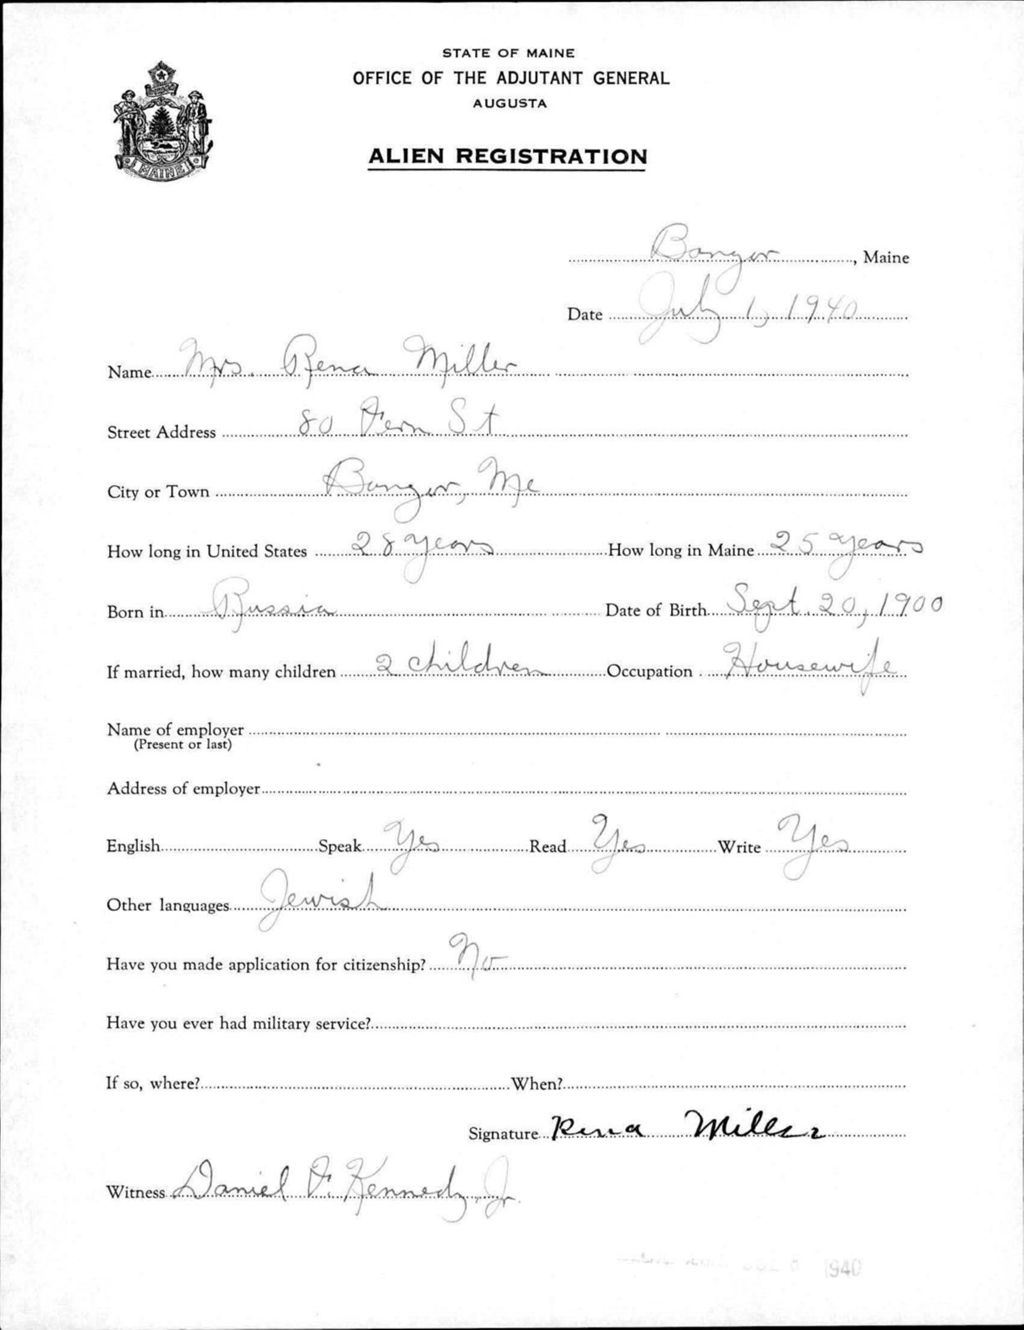 STATE OF MAINE
OFFICE OF THE ADJUTANT GENERAL
AUGUSTA
ALIEN REGISTRATION
MAINE
Bangor, Maine
Date July 1, 1940
Name Mrs. Rena Miller
Street Address 80 Fern St
City or Town Bangor, Me
How long in United States 28 years How long in Maine 25 years
Born in Russia Date of Birth Sept. 20, 1900
If married, how many children 2 children Occupation Housewife
Name of employer
(Present or last)
Address of employer
English Speak Yes Read Yes Write Yes
Other languages Jewish
Have you made application for citizenship? No
Have you ever had military service?
If so, where? When?
Signature Rena Miller
Witness Daniel F. Kennedy, Jr.
1940